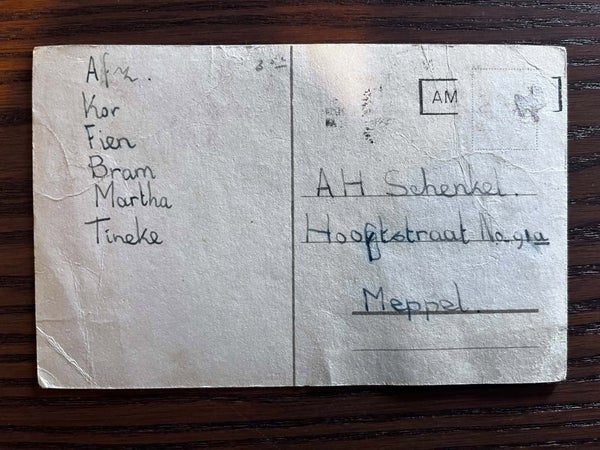 Afz.
Kor
Fien
Bram
Martha
Tineke
AM
AH Schenkel.
Hooftstraat No 91a
Meppel.